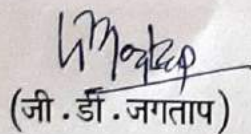 (जी . डी . जगताप)